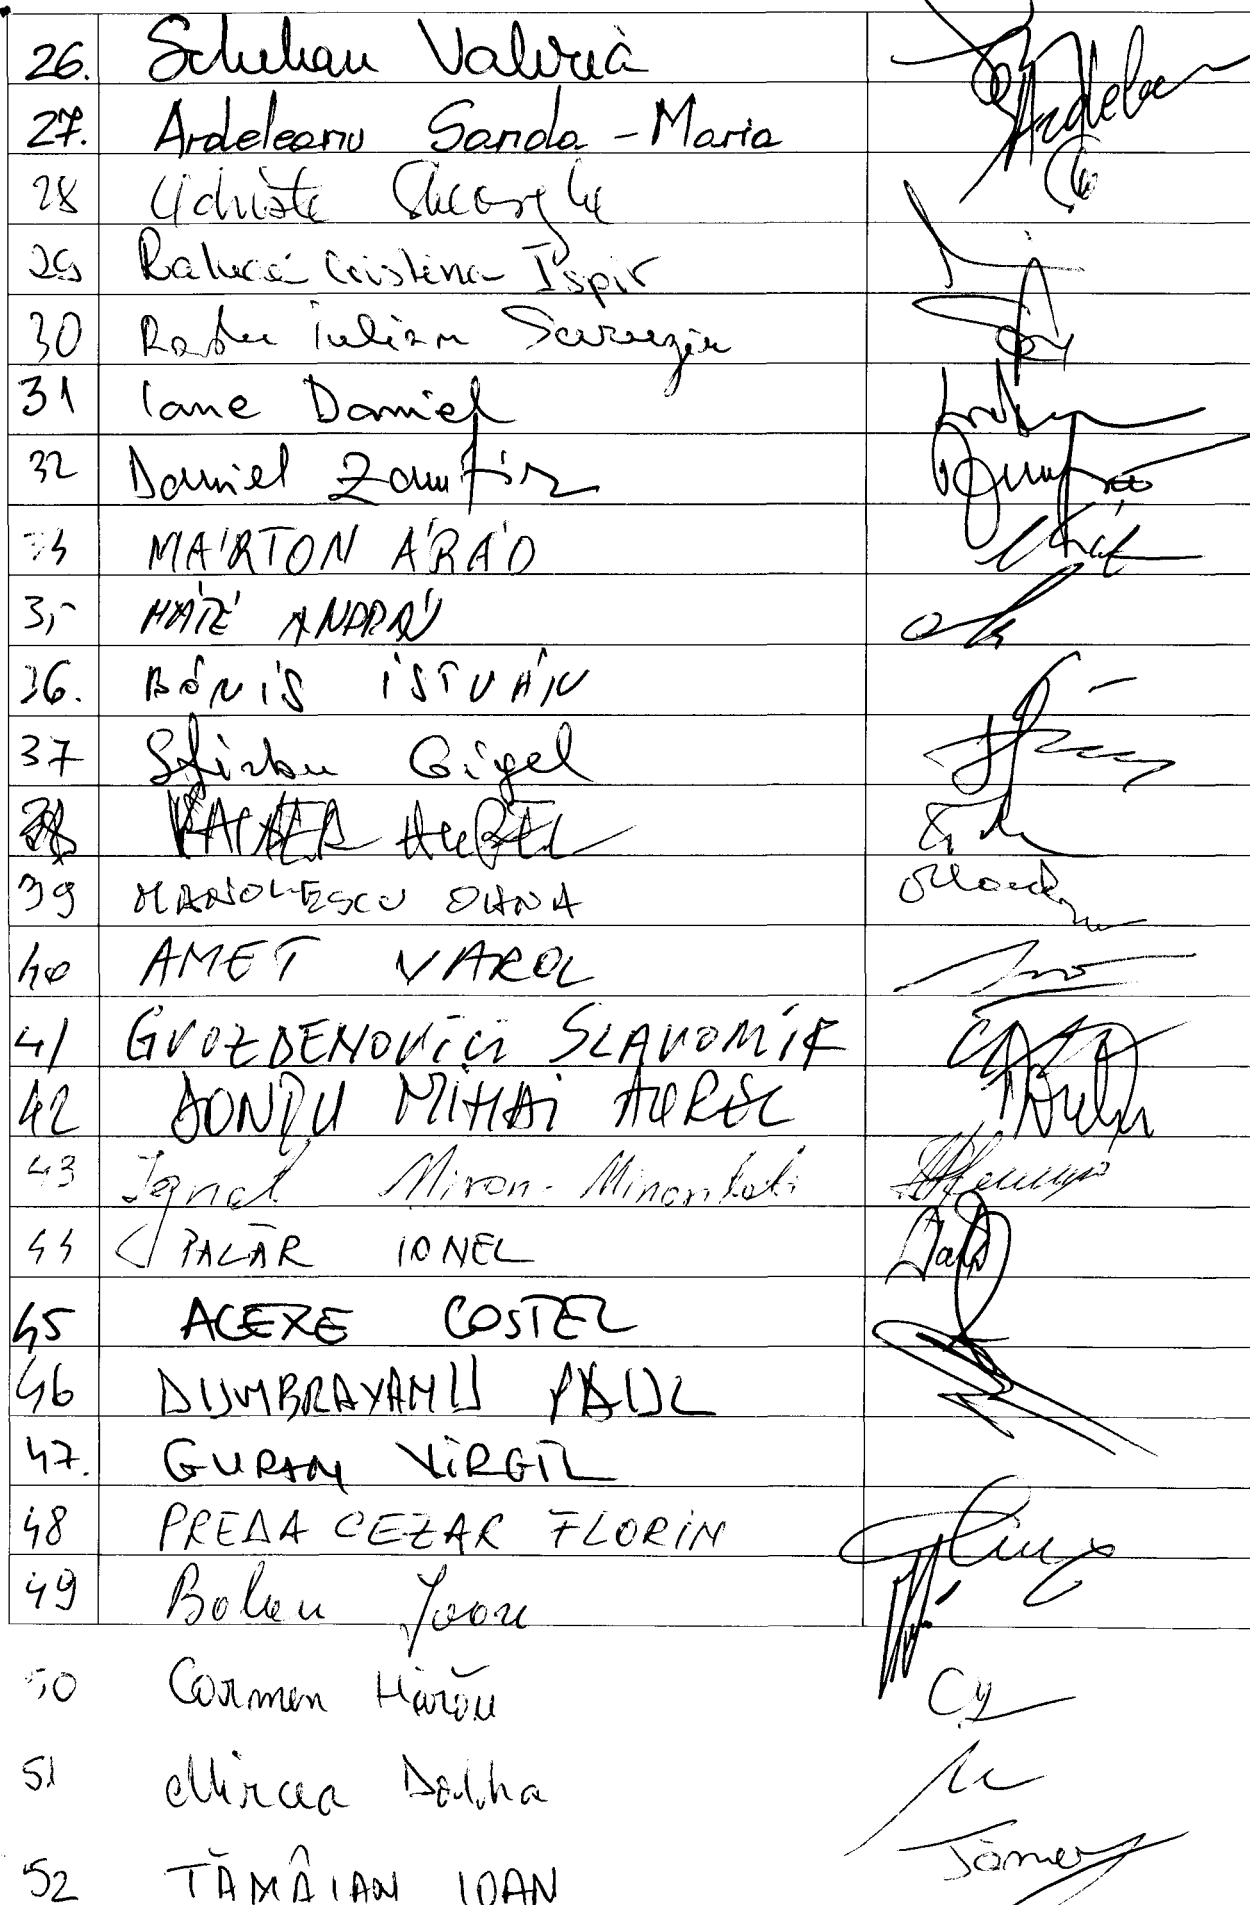 26. Schelean Valeria
27. Ardeleanu Sanda-Maria Ardelea
28 Udriște Gheorghe
29 Raluca Cristina Ispir
30 Radu Iulian Scruzeru
31 Iane Daniel
32 Daniel Zamfir
34 MÁRTON ÁRÁD
35 MÁTÉ ANDRÁS
36. BÓNIS ISTVÁN
37 Știrbu Gigel
38 AUREL
39 MANOLESCU OANA
40 AMET VAROL
41 GVOZDENOVICI SLAVOMIR
42 DONȚU MIHAI AUREL
43 Ignat Miron
44 PALĂR IONEL
45 ALEXE COSTEL
46 DUMBRAVANU PAUL
47. GURAN VIRGIL
48 PREDA CEZAR FLORIN
49 Bolan Ioan
50 Carmen Hărău
51 Mircea Dolha
52 TĂMÂIAN IOAN